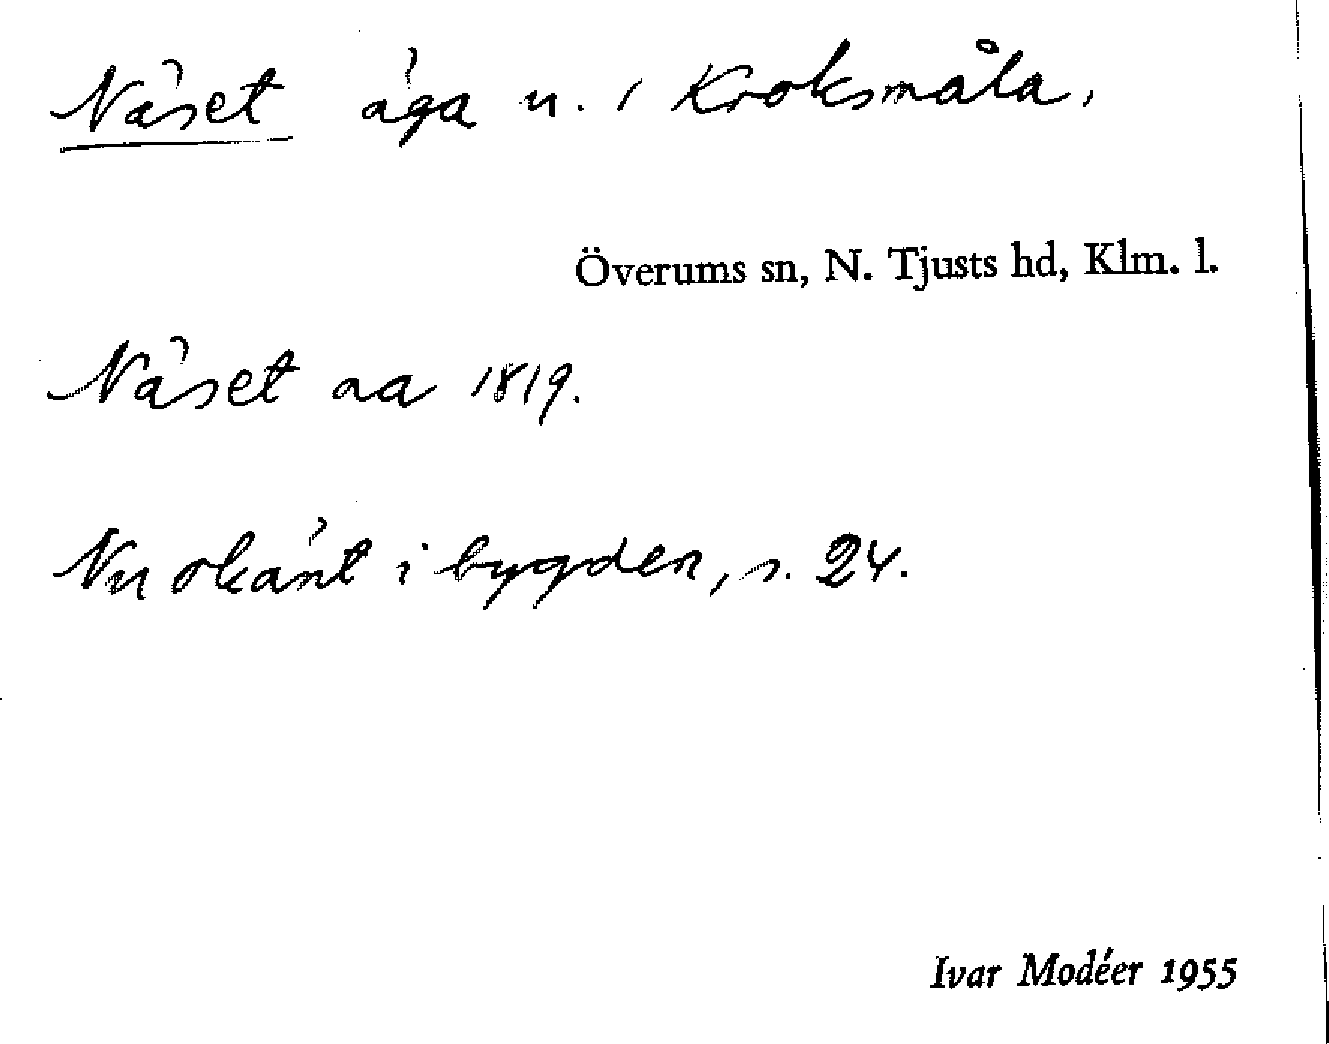 Näset äga u. i Kroksmåla,
Överums sn, N. Tjusts hd, Klm. l.
Näset aa 1819.
Nu okänt i bygden, s. 24.
Ivar Modéer 1955